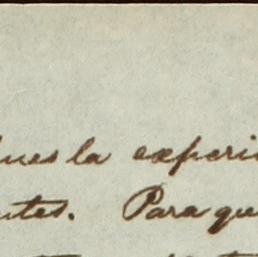 pues la experi
ntes. Para que